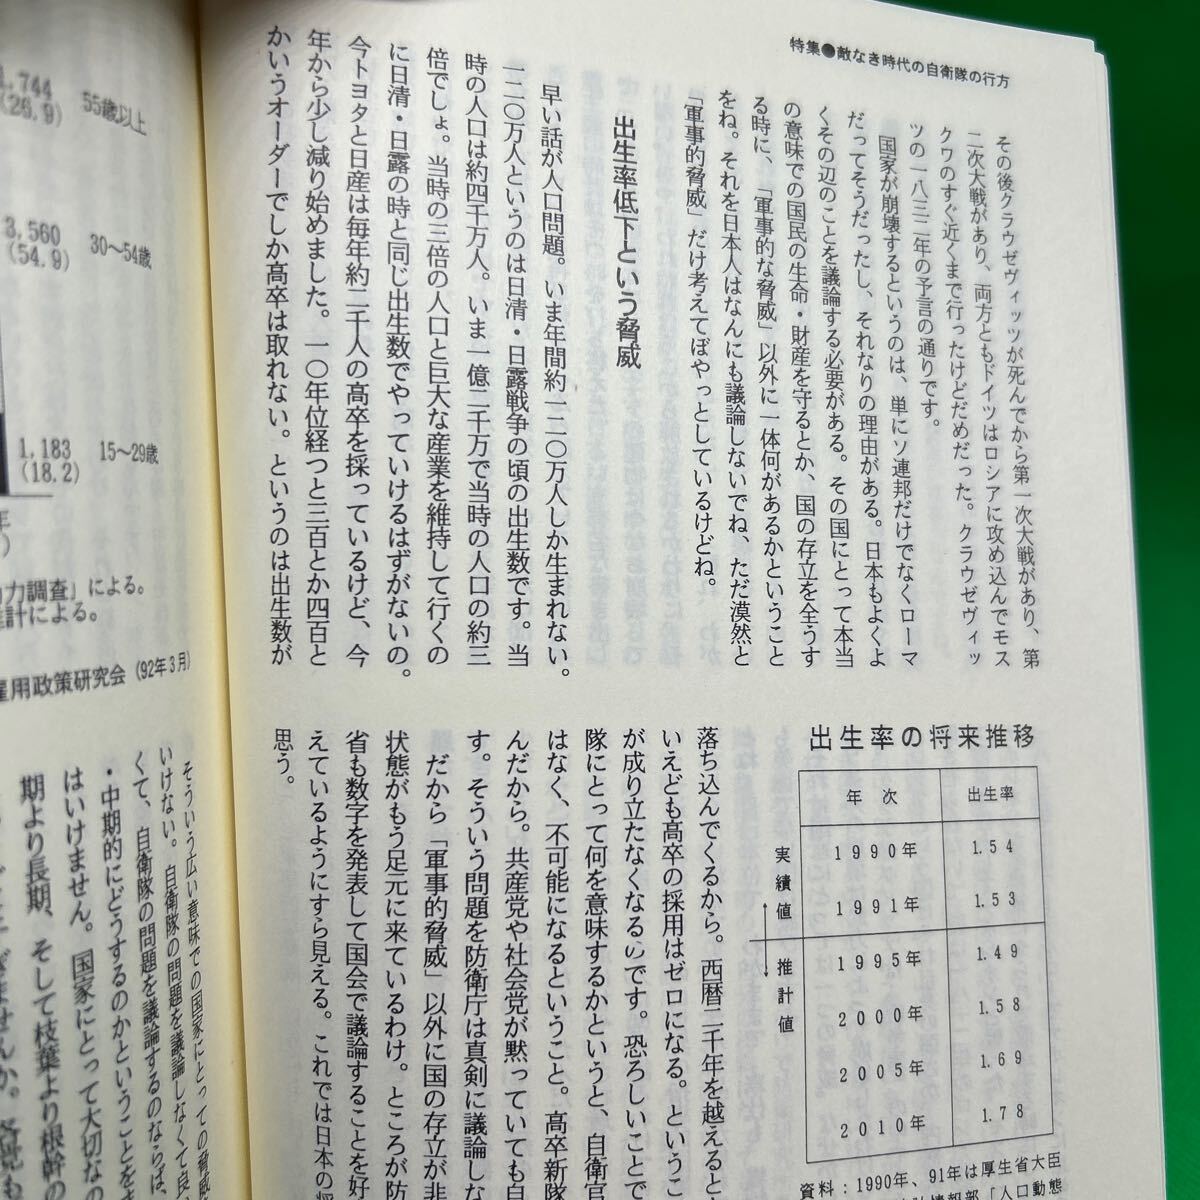 特集●敵なき時代の自衛隊の行方
その後クラウゼヴィッツが死んでから第一次大戦があり、第
二次大戦があり、両方ともドイツはロシアに攻め込んでモス
クワのすぐ近くまで行ったけどだめだった。クラウゼヴィッ
ツの一八三二年の予言の通りです。
国家が崩壊するというのは、単にソ連邦だけでなくローマ
だってそうだったし、それなりの理由がある。日本もよくよ
くその辺のことを議論する必要がある。その国にとって本当
の意味での国民の生命・財産を守るとか、国の存立を全うす
る時に、「軍事的な脅威」以外に一体何があるかということ
をね。それを日本人はなんにも議論しないでね、ただ漠然と
「軍事的脅威」だけ考えてぼやっとしているけどね。
出生率低下という脅威
早い話が人口問題。いま年間約一二〇万人しか生まれない。
一二〇万人というのは日清・日露戦争の頃の出生数です。当
時の人口は約四千万人。いま一億二千万で当時の人口の約三
倍でしょ。当時の三倍の人口と巨大な産業を維持して行くの
に日清・日露の時と同じ出生数でやっていけるはずがないの。
今トヨタと日産は毎年約二千人の高卒を採っているけど、今
年から少し減り始めました。一〇年位経つと三百とか四百と
かいうオーダーでしか高卒は取れない。というのは出生数が
出生率の将来推移
年次 出生率
実績値
1990年 1.54
1991年 1.53
推計値
1995年 1.49
2000年 1.58
2005年 1.69
2010年 1.78
資料：1990年、91年は厚生省大臣
情報部「人口動態
落ち込んでくるから。西暦二千年を越えると
いえども高卒の採用はゼロになる。というこ
が成り立たなくなるのです。恐ろしいことで
隊にとって何を意味するかというと、自衛官
はなく、不可能になるということ。高卒新隊
んだから。共産党や社会党が黙っていても自
す。そういう問題を防衛庁は真剣に議論しな
だから「軍事的脅威」以外に国の存立が非
状態がもう足元に来ているわけ。ところが防
省も数字を発表して国会で議論することを好
えているようにすら見える。これでは日本の将
思う。
744
(26.9)
55歳以上
3,560
(54.9)
30〜54歳
1,183
(18.2)
15〜29歳
力調査」による。
計による。
雇用政策研究会（92年3月）
そういう広い意味での国家にとっての脅威
いけない。自衛隊の問題を議論しなくて良い
くて、自衛隊の問題を議論するのならば、
・中期的にどうするのかということを
はいけません。国家にとって大切な
期より長期、そして枝葉より根幹の